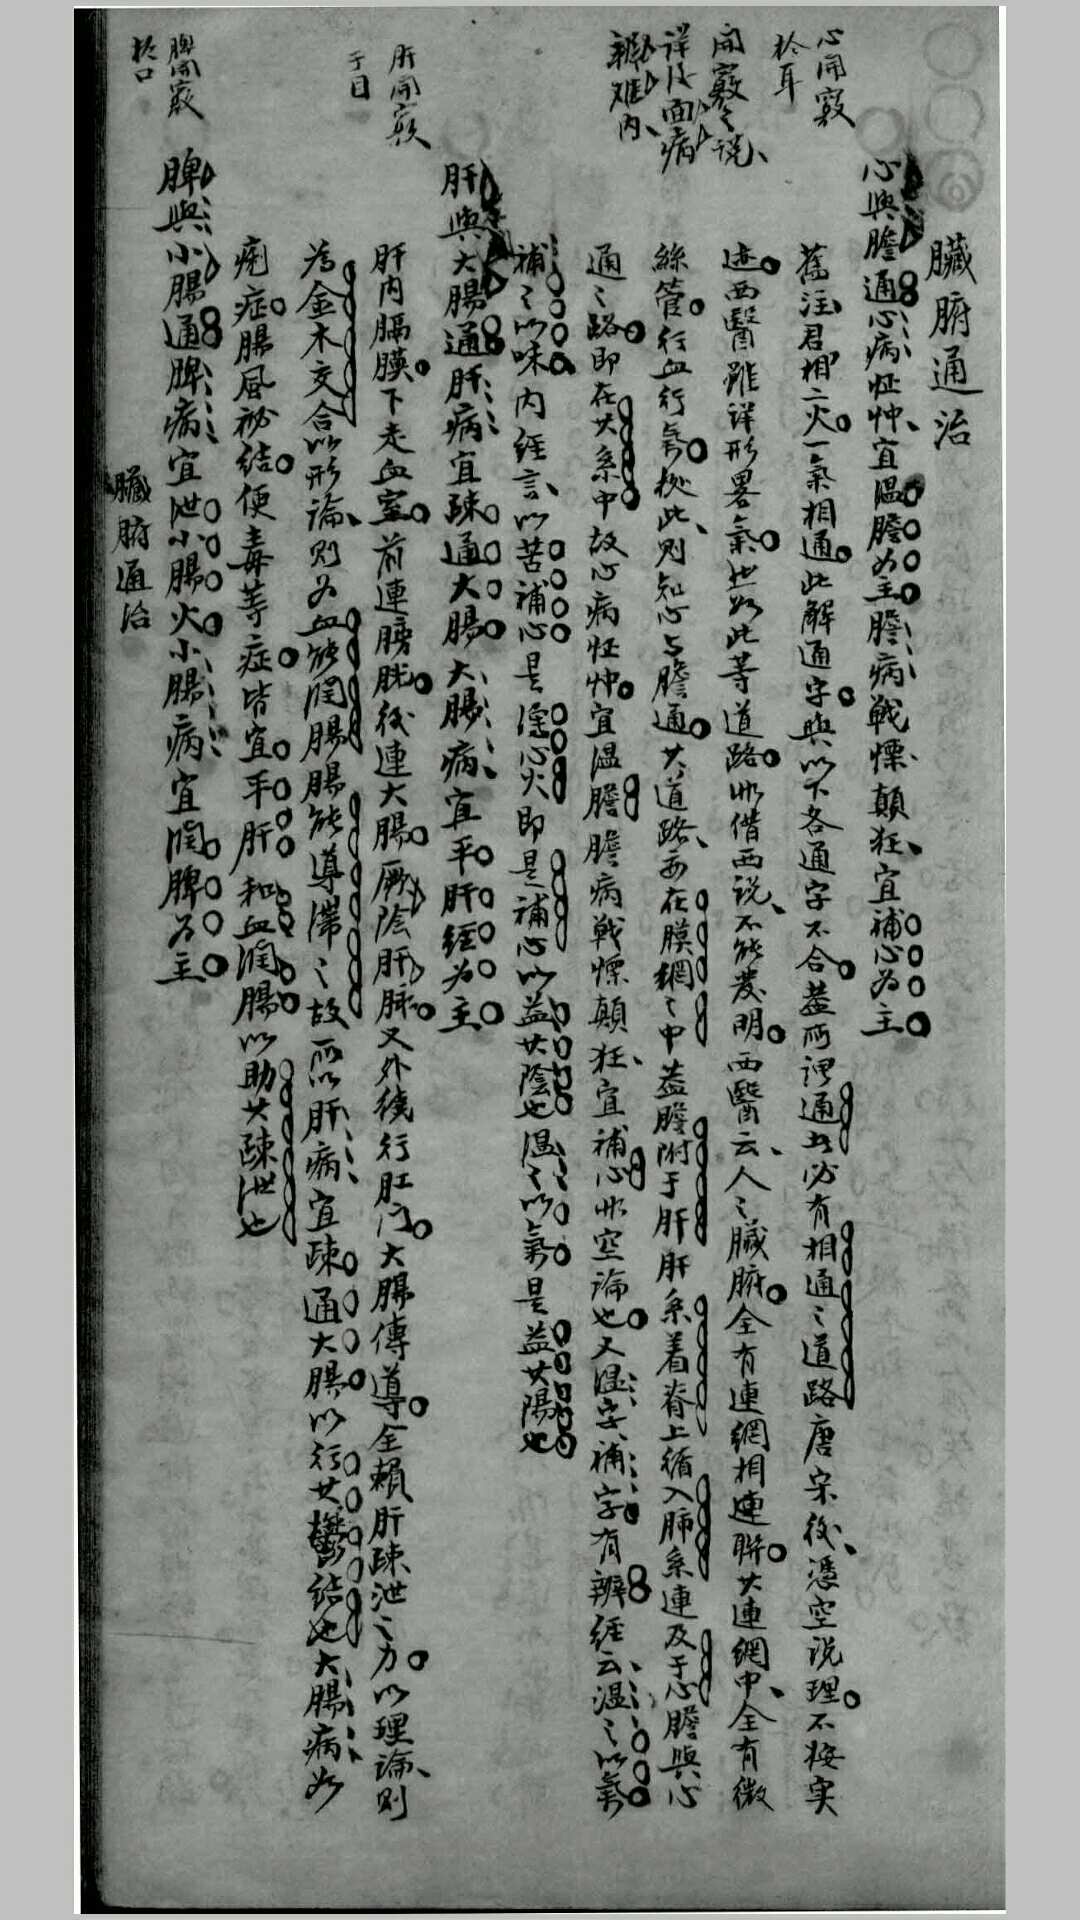 臟腑通治
心與膽通心病怔忡宜溫膽為主膽病戰慄顛狂宜補心為主
心開竅
於耳
舊注君相二火一氣相通此解通字與以下各通字不合蓋所謂通者必有相通之道路唐宋後憑空說理不按实
迹西醫雖詳形畧氣然如此等道路非借西說不能發明西醫云人之臟腑全有連網相連聯其連網中全有微
開竅之說
詳後面病
難內
絲管行血行氣據此則知心与膽通其道路亦在膜網之中蓋膽附于肝肝系着脊上循入肺系連及于心膽與心
通之路即在其系中故心病怔忡宜溫膽膽病戰慄顛狂宜補心非空論也又溫字補字有辨經云溫之以氣
補之以味內經言以苦補心是瀉心火即是補心以益其陰也溫之以氣是益其陽也
肝與大腸通肝病宜疎通大腸大腸病宜平肝經為主
肝開竅
于目
肝內膈膜下走血室前連膀胱後連大腸厥陰肝脉又外繞行肛门大腸傳導全賴肝疎泄之力以理論則
為金木交合以形論則为血能潤腸腸能導滯之故所以肝病宜疎通大腸以行其鬱結也大腸病如
痢症腸風秘結便毒等症皆宜平肝和血潤腸以助其疎泄也
脾與小腸通脾病宜泄小腸火小腸病宜潤脾為主
脾開竅
於口
臟腑通治